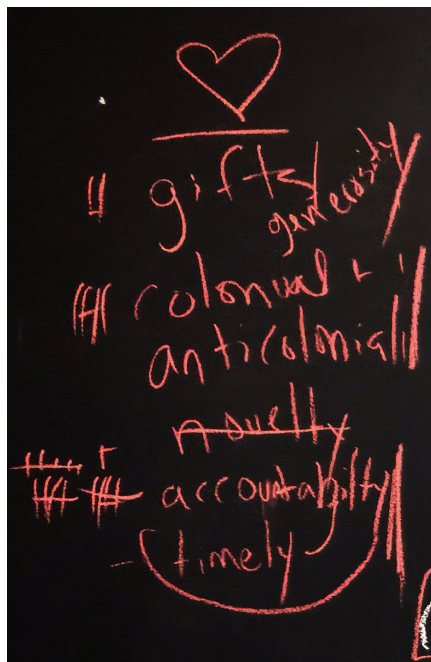 gifts/
generosity
colonial +
anticolonial
novelty
accountabilty
timely